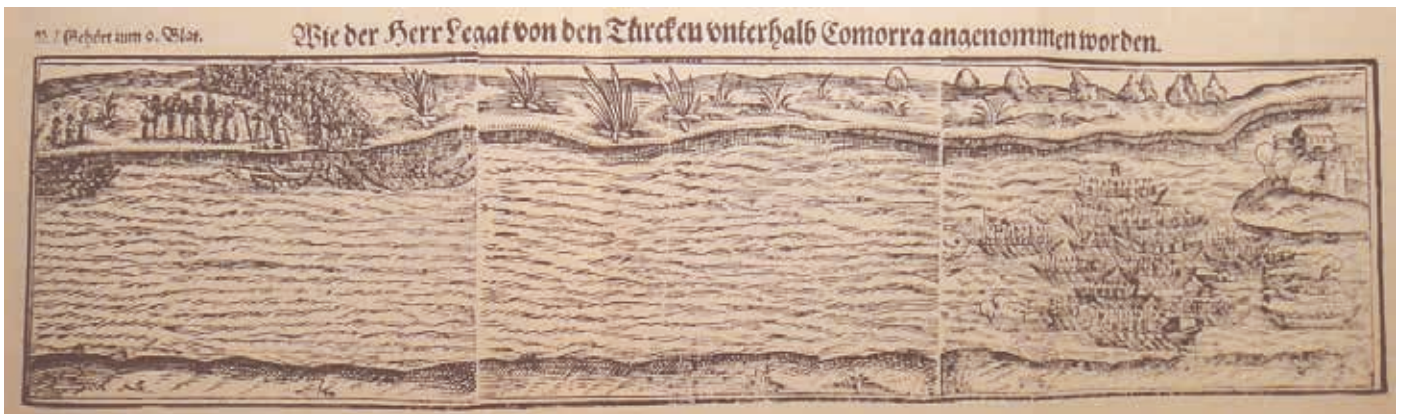 Gehört zum 9. Blat.
Wie der Herr Legat von den Türcken vnterhalb Comorra angenommen worden.